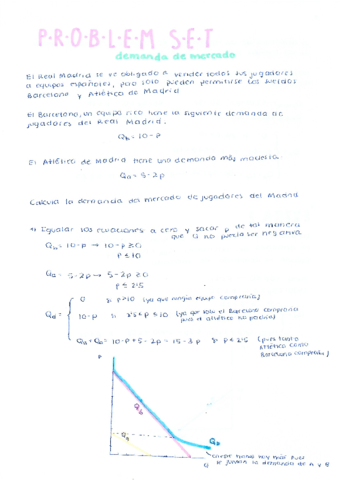 PROBLEM SET
demanda de mercado
El Real Madrid se ve obligado a vender todos sus jugadores
a equipos españoles, pero solo pueden permitirse los sueldos
Barcelona y Atlético de Madrid
El Barcelona, un equipo rico tiene la siguiente demanda de
jugadores del Real Madrid.
Qb = 10-P
El Atlético de Madrid tiene una demanda más modesta
Qa = 5-2p
Calcula la demanda de mercado de jugadores del Madrid
Igualar las ecuaciones a cero y sacar p de tal manera
que Q no pueda ser negativa
Qb = 10-p → 10-p ≥ 0
p ≤ 10
Qa = 5-2p → 5-2p ≥ 0
p ≤ 2.5
0 si p>10 (ya que ningún equipo compraría)
Qd = 10-p si 2.5≤p≤10 (ya que solo el Barcelona compraría
pues el atlético no podría)
Qa+Qb = 10-p+5-2p = 15-3p si p≤2.5 (pues tanto
Atlético como
Barcelona compran)
P
Qb
Qa
Qd
Q
la demanda de A y B